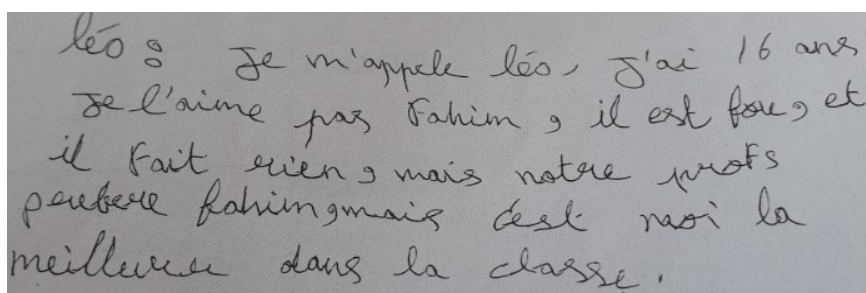 léo : Je m'appele léo, J'ai 16 ans
Je l'aime pas Fahim, il est fou, et
il fait rien, mais notre profs
Fahim, mais c'est moi la
dans la classe.